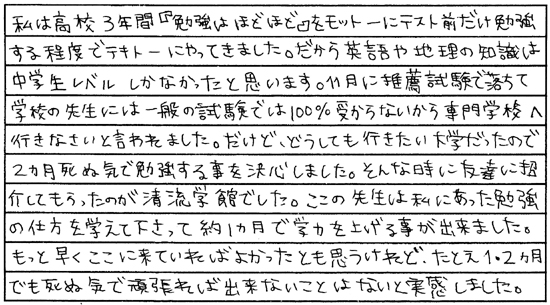 私は高校3年間『勉強はほどほど』をモットーにテスト前だけ勉強
する程度でテキトーにやってきました。だから英語や地理の知識は
中学生レベルしかなかったと思います。11月に推薦試験で落ちて
学校の先生には一般の試験では100%受からないから専門学校へ
行きなさいと言われました。だけど、どうしても行きたい大学だったので
2ヵ月死ぬ気で勉強する事を決心しました。そんな時に友達に紹
介してもらったのが清流学館でした。ここの先生は私にあった勉強
の仕方を学えて下さって約1ヵ月で学力を上げる事が出来ました。
もっと早くここに来ていればよかったとも思うけれど、たとえ1・2ヵ月
でも死ぬ気で頑張れば出来ないことはないと実感しました。